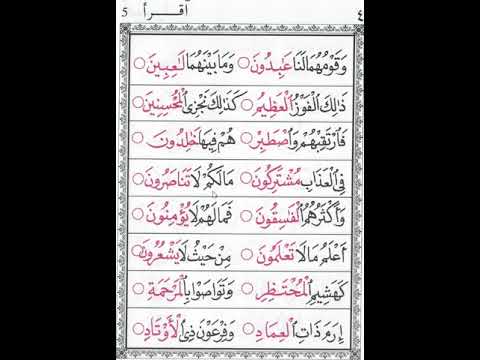 ٤ اقــرأ 5
وَقَوْمُهُمَا لَنَا عَابِدُونَ ○ وَمَا بَيْنَهُمَا لَاعِبِينَ ○
ذَالِكَ الْفَوْزُ الْعَظِيمُ ○ كَذَالِكَ نَجْزِي الْمُحْسِنِينَ ○
فَارْتَقِبْهُمْ وَاصْطَبِرْ ○ هُمْ فِيهَا خَالِدُونَ ○
فِي الْعَذَابِ مُشْتَرِكُونَ ○ مَا لَكُمْ لَا تَنَاصَرُونَ ○
وَأَكْثَرُهُمُ الْفَاسِقُونَ ○ فَمَا لَهُمْ لَا يُؤْمِنُونَ ○
أَعْلَمُ مَا لَا تَعْلَمُونَ ○ مِنْ حَيْثُ لَا يَشْعُرُونَ ○
كَهَشِيمِ الْمُحْتَظِرِ ○ وَتَوَاصَوْا بِالْمَرْحَمَةِ ○
إِرَمَ ذَاتِ الْعِمَادِ ○ وَفِرْعَوْنَ ذِي الْأَوْتَادِ ○